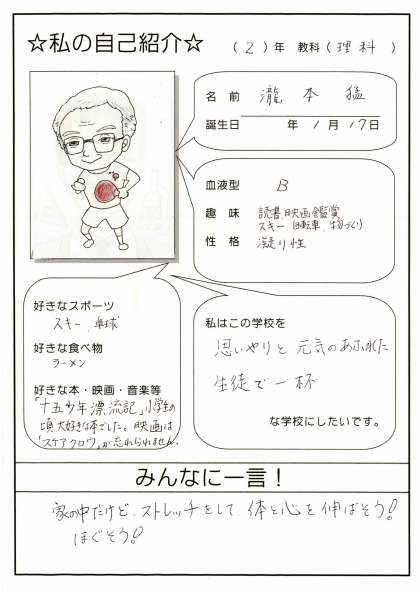 ☆私の自己紹介☆ (2)年 教科(理科)
名前 瀧本 猛
誕生日 年 1月17日
血液型 B
趣味 読書、映画鑑賞
スキー、自転車、物づくり
性格 凝り性
好きなスポーツ
スキー、卓球
好きな食べ物
ラーメン
好きな本・映画・音楽等
「十五少年漂流記」小学生の
頃大好きな本でした。映画は
「スケアクロウ」が忘れられません。
私はこの学校を
思いやりと元気のあふれた
生徒で一杯
な学校にしたいです。
みんなに一言!
家の中だけど、ストレッチをして、体と心を伸ばそう!
ほぐそう!